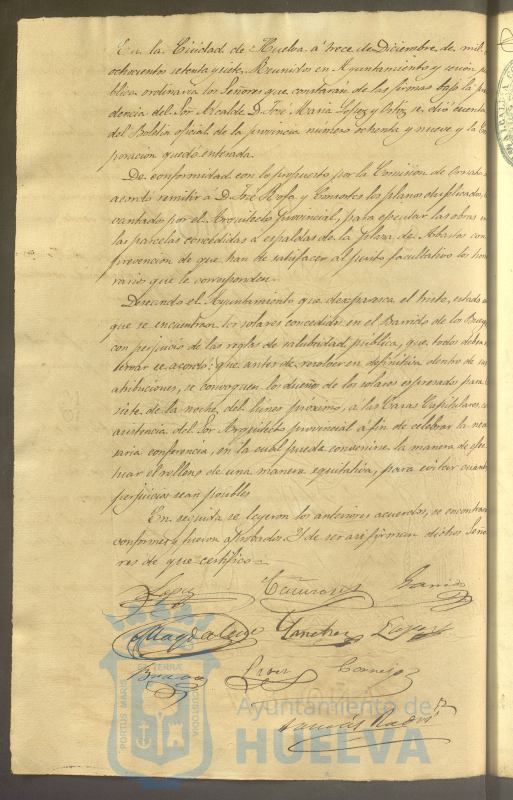 En la Ciudad de Huelva á trece de Diciembre de mil
ochocientos setenta y siete, Reunidos en Ayuntamiento y sesión pú
blica ordinaria los Señores que constarán de las firmas bajo la pre
dencia del Sor Alcalde D. José Maria Lopez y Ortiz se dió cuenta
del Boletin oficial de la provincia número ochenta y nueve y la Cor
poración quedó enterada.
De conformidad con lo propuesto por la Comisión de Ornato
acordó remitir á D. José y Consortes los planos duplicados, le
vantado por el Arquitecto provincial, para ejecutar las obras en
las parcelas concedidas á espaldas de la plaza de Abastos con
prevención de que han de satisfacer al perito facultativo los hono
rarios que le corresponden.
Deseando el Ayuntamiento que desaparezca el triste estado en
que se encuentran los solares concedidos en el Barrido de los
con perjuicio de las reglas de salubridad pública, que todos deben
se acordó: que antes de resolver en definitiva dentro de sus
atribuciones, se convoquen los dueños de los solares espresados para
siete de la noche, del lunes próximo, á las Casas Capitulares, con
asistencia del Sor Arquitecto provincial á fin de celebrar la nece
saria conferencia, en la cual pueda convenirse la manera de efec
tuar el relleno de una manera equitativa, para evitar cuantos
perjuicios sean posibles
En seguida se leyeron los anteriores acuerdos, se encontraron
conformes y fueron aprobados. Y de ser asi firman dichos Seño
res de que certifico.
Lopez Garrido
Magdalena Sanchez Lopez
Bravo Cornejo
Tomás
PORTUS MARIS ET TERRÆ CUSTODIA
Ayuntamiento de
HUELVA